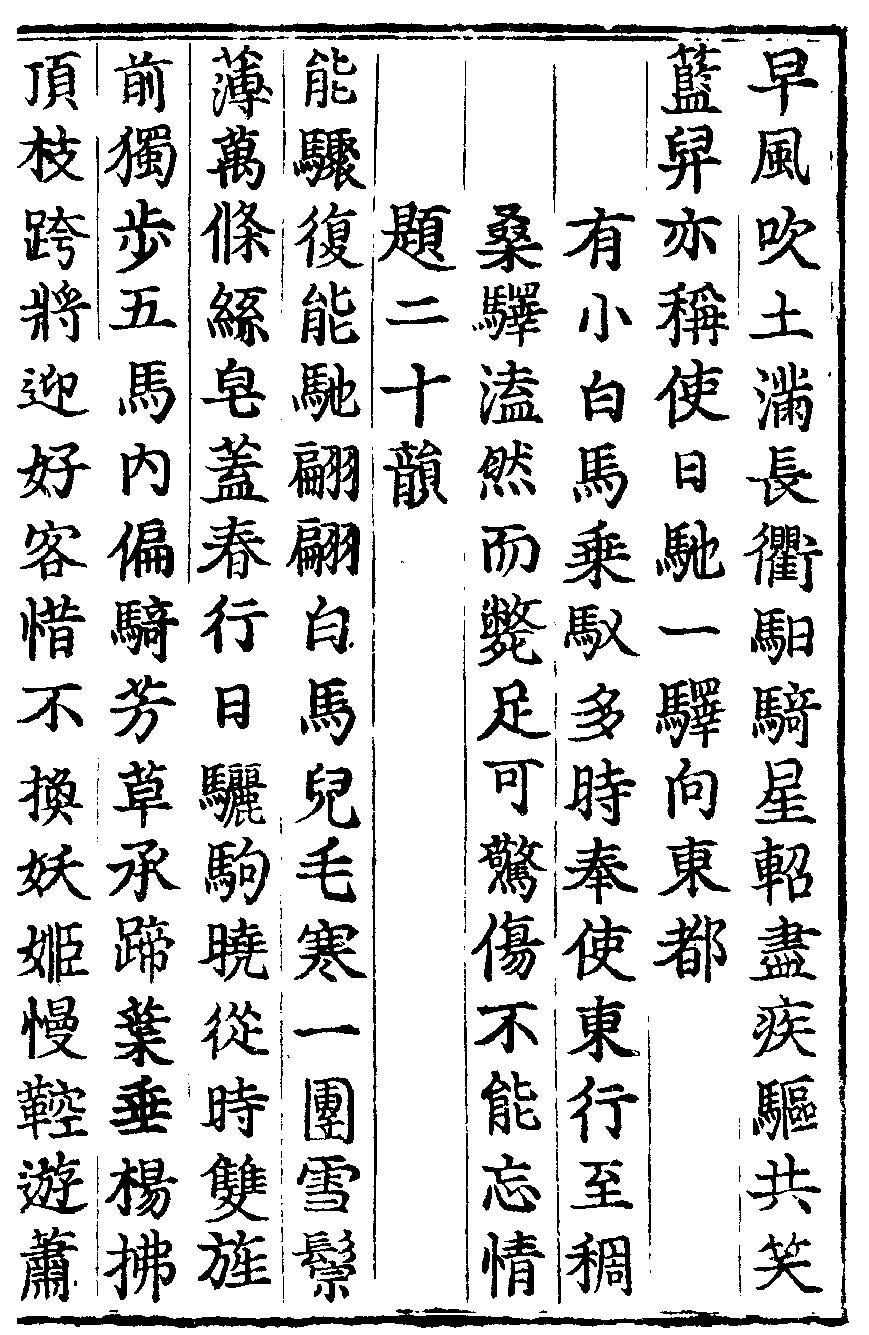 早風吹土滿長衢馹騎星軺盡疾驅共笑
藍舁亦稱使日馳一驛向東都
有小白馬乗馭多時奉使東行至稠
桑驛溘然而斃足可驚傷不能忘情
題二十韻
能驟復能馳翩翩白馬兒毛寒一團雪鬃
薄萬條絲皂蓋春行日驪駒曉從時雙旌
前獨步五馬內偏騎芳草承蹄葉垂楊拂
頂枝跨將迎好客惜不換妖姬慢鞚遊蕭